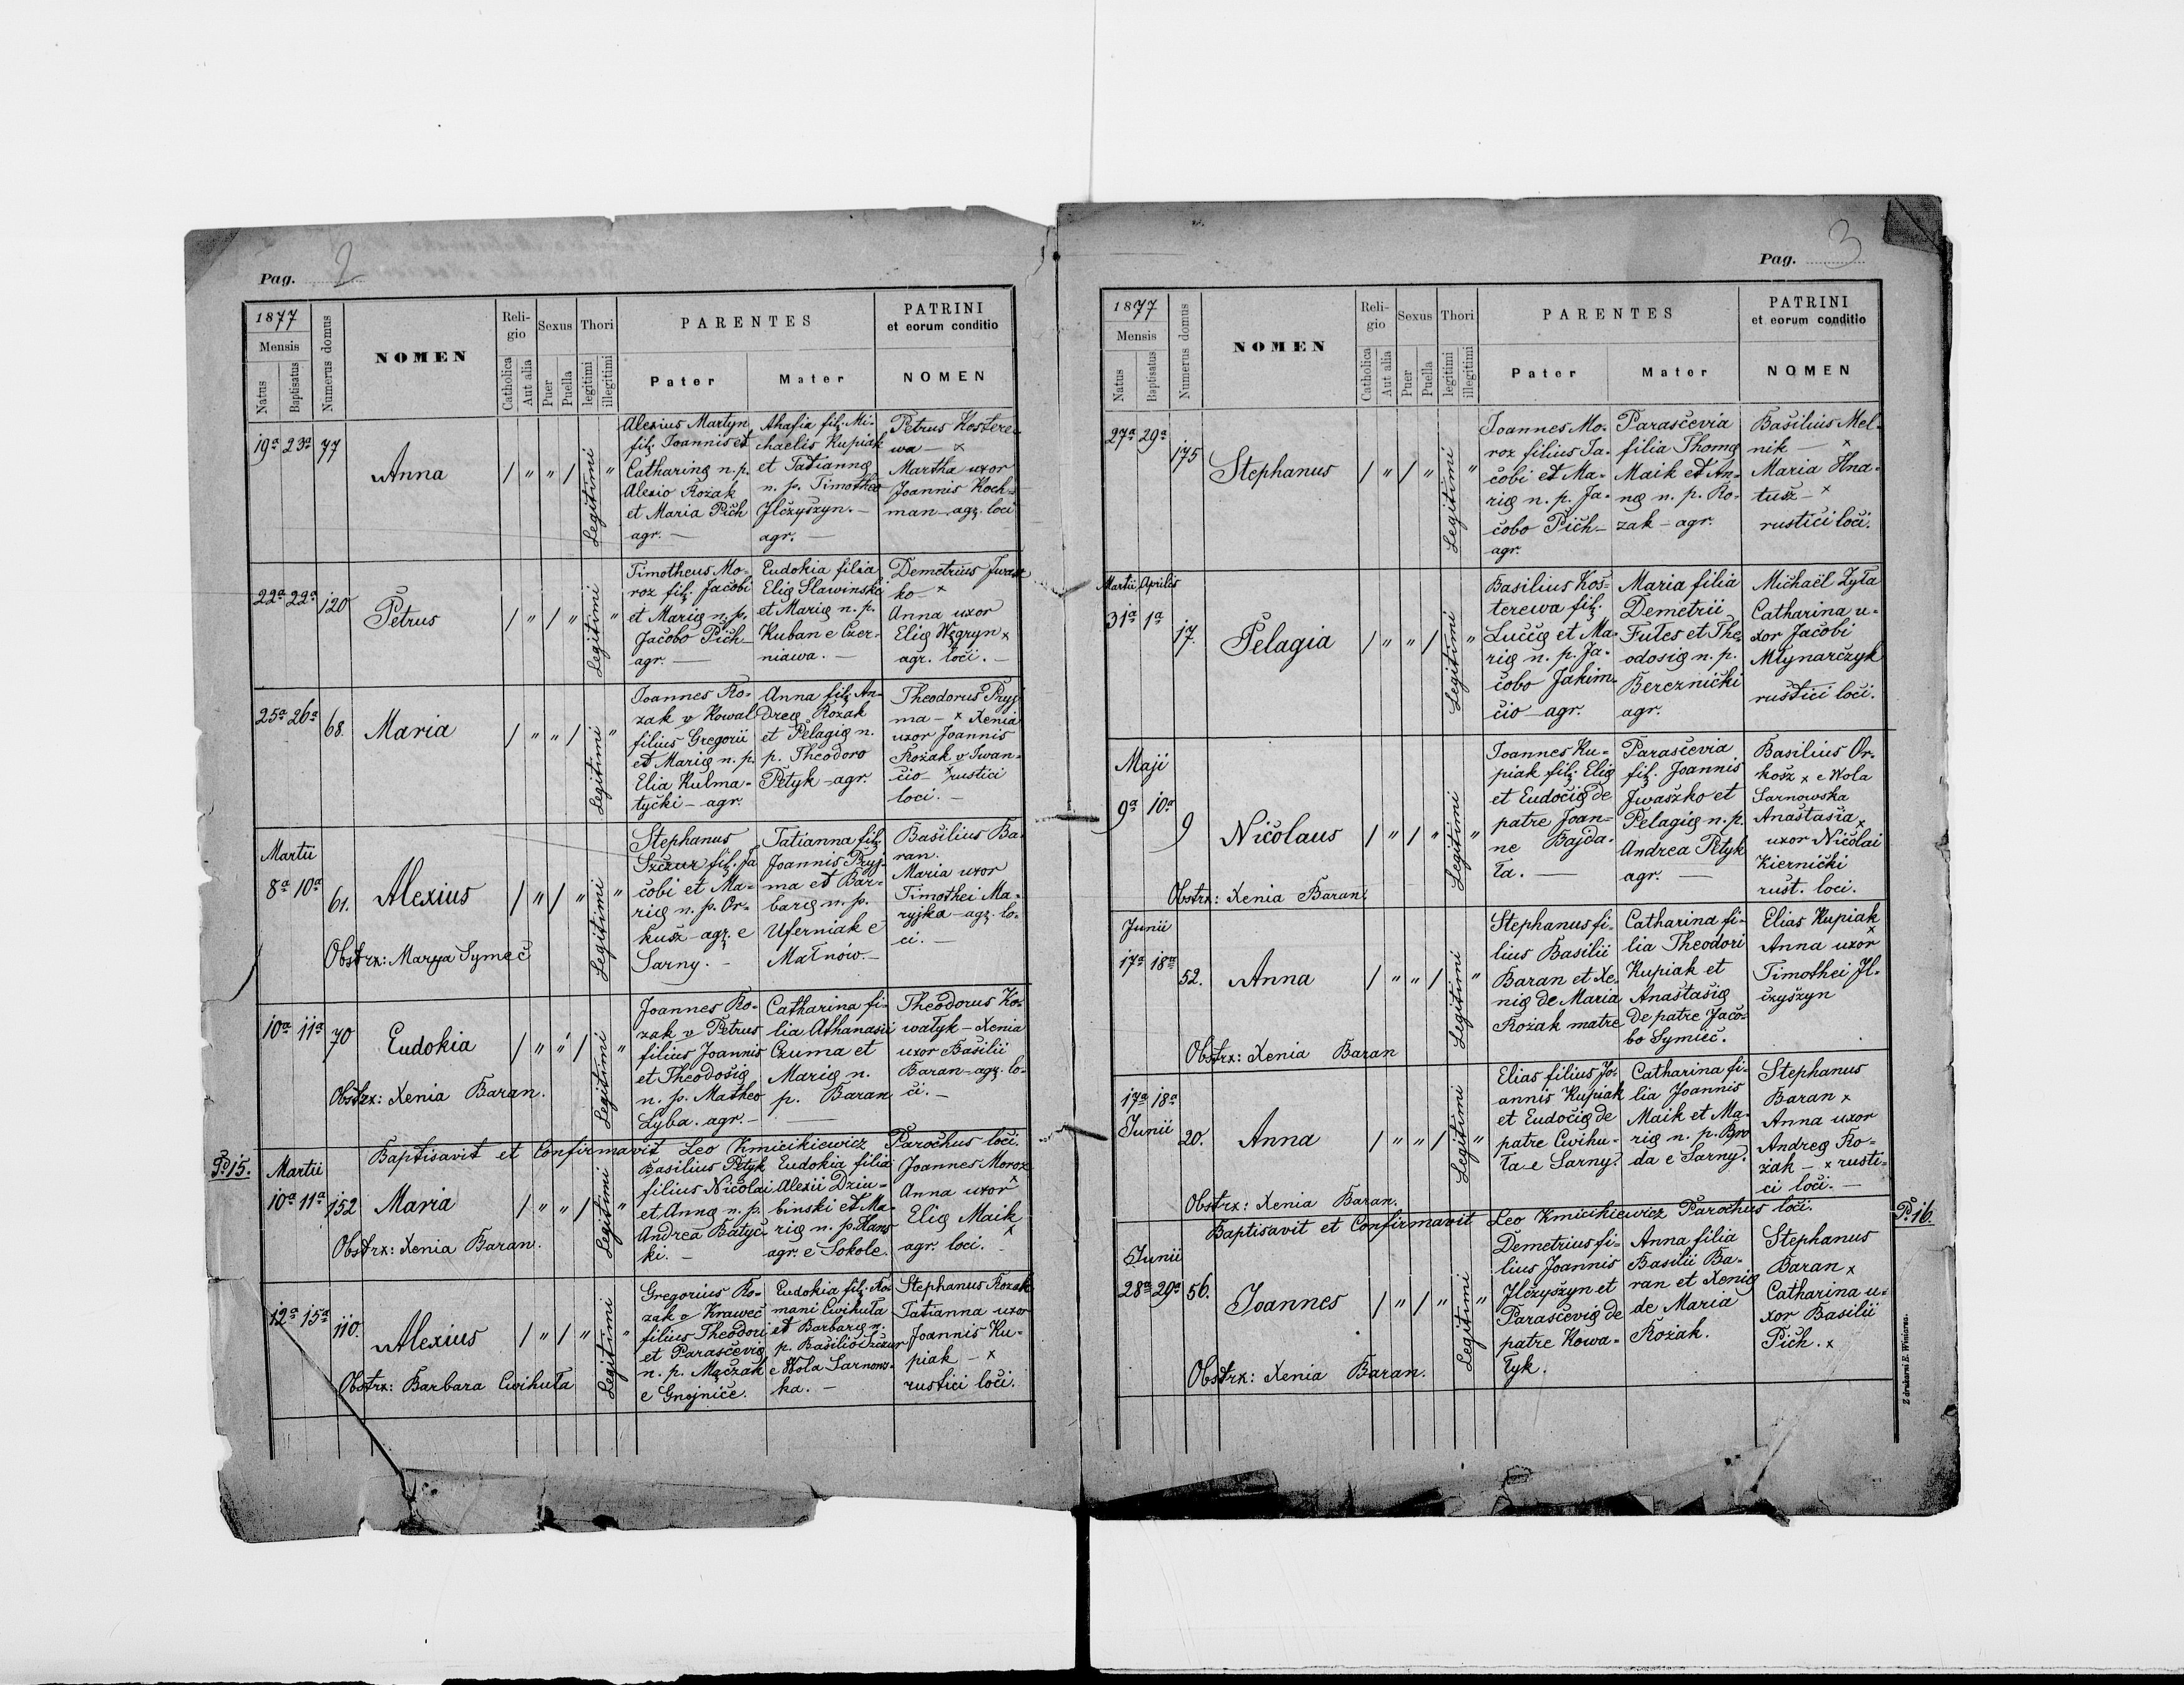 Pag. 2
1877
Mensis
Natus
Baptisatus
Numerus domus
NOMEN
Religio
Catholica
Aut alia
Sexus
Puer
Puella
Thori
legitimi
illegitimi
PARENTES
Pater
Mater
PATRINI
et eorum conditio
NOMEN
19a 23a 77
Anna
/ " " / Legitimi "
Alexius Martyn
fil. Joannis et
Catharinę n. p.
Alexio Rożak
et Maria Pich
agr. —
Ahafia fil. Mi-
chaelis Kupiak
et Tatiannę
n. p. Timotheo
Jlčzyszyn. —
agr. —
Petrus Kostere-
wa — x
Martha uxor
Joannis Koch-
man — agr. loci
22a 22a 120
Petrus
/ " / " Legitimi "
Timotheus Mo-
roz fil. Jacobi
et Marię n. p.
Jacobo Pich —
agr. —
Eudokia filia
Elię Slawinski
et Marię n. p.
Kuban e Czer-
niawa. —
Demetrius Jwasz
ko — x
Anna uxor
Elię Węgryn x
agr. loci. —
25a 26a 68.
Maria
/ " " / Legitimi "
Joannes Ro-
zak v Kowal
filius Gregorii
et Marię n. p.
Elia Kulma-
tyčki — agr.
Anna fil. An-
dreę Rożak
et Pelagię n.
p. Theodoro
Petyk — agr.
Theodorus Pryj
ma — x Xenia
uxor Joannis
Rożak v Iwan-
čio — x rustici
loci. —
Martii
8a 10a 61.
Alexius
/ " / " Legitimi "
Obstrx: Marya Symeč
Stephanus
Szčzur fil. Ja
čobi et Ma-
rię n. p. Or-
kusz — agr. e
Sarny. —
Tatianna fil.
Joannis Pryj-
ma et Bar-
barę n. p.
Uferniak e
Małnów. —
Basilius Ba-
ran.
Maria uxor
Timothei Ma-
ryjka — agr. lo-
ci. —
10a 11a 70
Eudokia
/ " " / Legitimi "
Obstrx: Xenia Baran.
Joannes Ro-
zak v Petrus
filius Joannis
et Theodosię
n. p. Matheo
Lyba. agr. —
Catharina fi-
lia Athanasii
Czuma et
Marię n.
p. Baran
Theodorus Ko-
wałyk — Xenia
uxor Basilii
Baran — agr. lo-
ci. —
Baptisavit et Confirmavit Leo Kmicikiewicz Parochus loci.
P. 15.
Martii
10a 11a 152
Maria
/ " " / Legitimi "
Obstrx: Xenia Baran.
Basilius Petyk
filius Nicolai
et Annę n. p.
Andrea Batyč
ki. —
Eudokia filia
Alexii Dziu-
binski et Ma-
rię n. p. Hans
agr. e Sokole.
Joannes Moroz
x
Anna uxor
Elię Maik
x
agr. loci. —
12a 15a 110.
Alexius
/ " / " Legitimi "
Obstrx: Barbara Cwihuła
Gregorius Ro-
zak v Kraweč
filius Theodori
et Parasčevię
n. p. Mačzak
e Gnojniče.
Eudokia fil. Ro-
mani Cwihuła
et Barbarę n.
p. Basilio Szčzur
e Wola Sarnows-
ka. —
Stephanus Rozak
Tatianna uxor
Joannis Ku-
piak — x
rustici loci.
Pag. 3
1877
Mensis
Natus
Baptisatus
Numerus domus
NOMEN
Religio
Catholica
Aut alia
Sexus
Puer
Puella
Thori
legitimi
illegitimi
PARENTES
Pater
Mater
PATRINI
et eorum conditio
NOMEN
27a 29a 175
Stephanus
/ " / " Legitimi "
Joannes Mo-
roz filius Ja-
čobi et Ma-
rię n. p. Ja-
čobo Pich —
agr.
Parasčevia
filia Thomę
Maik et An-
nę n. p. Ro-
zak — agr.
Basilius Mel-
nik — x
Maria Hna-
tusz — x
rustiči loči.
Martii Aprilis
31a 1a 17.
Pelagia
/ " " / Legitimi "
Basilius Kos-
terewa fil.
Luččę et Ma-
rię n. p. Ja-
čobo Jakim-
čio — agr.
Maria filia
Demetrii
Futes et The-
odosię n. p.
Bereznički
agr.
Michaël Zyła
Catharina u-
xor Jacobi
Młynarčzyk
rustici loci.
Maji
9a 10a 9
Nicolaus
/ " / " Legitimi "
Obstrx: Xenia Baran.
Joannes Ku-
piak fil. Elię
et Eudočię de
patre Joan-
ne Bajda-
ła. —
Parasčevia
fil. Joannis
Jwaszko et
Pelagię n. p.
Andrea Petyk
agr. —
Basilius Or-
kosz x e Wola
Sarnowska
Anastasia x
uxor Nicolai
Kiernički
rust. loci.
Junii
17a 18a 52.
Anna
/ " " / Legitimi "
Obstrx: Xenia Baran
Stephanus fi-
lius Basilii
Baran et Xe-
nię de Maria
Rożak matre
Catharina fi-
lia Theodori
Kupiak et
Anastasię
de patre Jačo-
bo Symieč.
Elias Kupiak
x
Anna uxor
Timothei Jl-
čzyszyn
17a 18a
Junii
20.
Anna
/ " " / Legitimi "
Obstrx: Xenia Baran.
Elias filius Jo-
annis Kupiak
et Eudočię de
patre Cwihu-
ła e Sarny.
Catharina fi-
lia Joannis
Maik et Ma-
rię n. p. Bro
da e Sarny.
Stephanus
Baran x
Anna uxor
Andreę Ro-
zak — x rusti-
ci loci. —
Baptisavit et Confirmavit Leo Kmicikiewicz Parochus loci.
P. 16.
Junii
28a 29a 56.
Joannes
/ " / " Legitimi "
Obstrx: Xenia Baran.
Demetrius fi-
lius Joannis
Jlčzyszyn et
Parasčevię de
patre Kowa-
łyk.
Anna filia
Basilii Ba-
ran et Xenię
de Maria
Rożak.
Stephanus
Baran x
Catharina u-
xor Basilii
Pich. x
Z drukarni E. Winiarza.